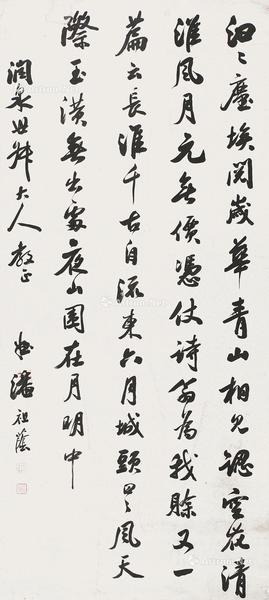 汩〻塵埃閱歲華青山相見空花清
淮風月元無價憑仗詩翁為我賒又一
篇云長淮千古自流東六月城頭〻風天
際玉潢無出處夜山圍在月明中
潤泉世叔大人教正 潘祖蔭